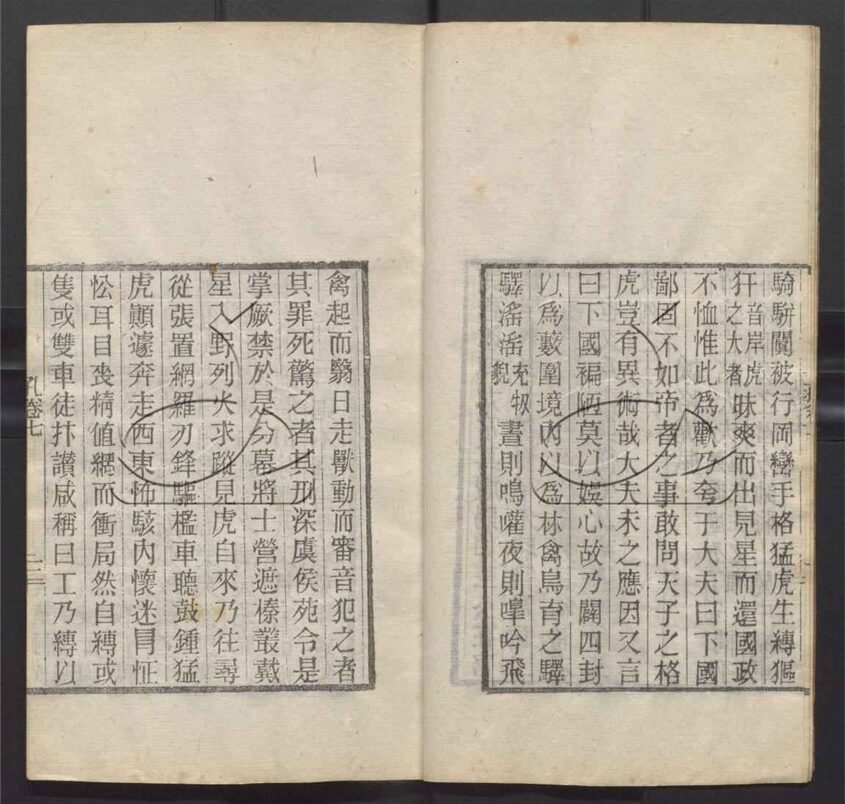 騎駢闐被行岡巒手格猛虎生縛貙
犴音岸虎之大者昧爽而出見星而還國政
不恤惟此為歡乃夸于大夫曰下國
鄙固不如帝者之事敢問天子之格
虎豈有異術哉大夫未之應因又言
曰下國褊陋莫以娛心故乃闢四封
以為藪圍境內以為林禽鳥育之驛
驛淫淫充牣貌晝則鳴嚾夜則嘷吟飛
禽起而翳日走獸動而審音犯之者
其罪死驚之者其刑深虞侯苑令是
掌厥禁於是分幕將士營遮榛叢戴
星入野列火求蹤見虎自來乃往尋
從張置網羅刃鋒驅檻車聽鼓鍾猛
虎顛遽奔走西東怖駭內懷迷冒怔
忪耳目喪精值網而衝局然自縛或
隻或雙車徒抃讚咸稱曰工乃縛以
孔 卷七